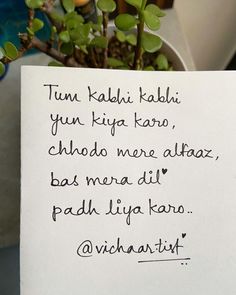 Tum kabhi kabhi
yun kiya karo,
chhodo mere alfaaz,
bas mera dil
padh liya karo..
@vichaar.tist